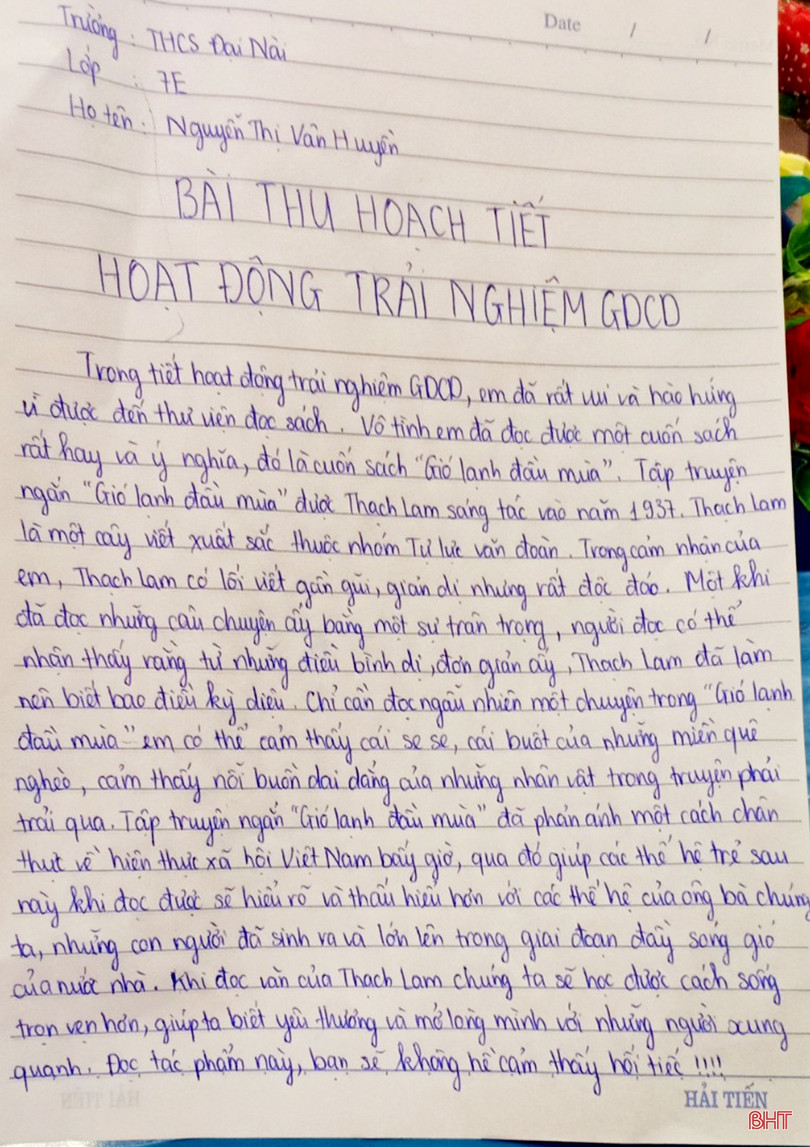 Date / /
Trường : THCS Đại Nài
Lớp : 7E
Họ tên : Nguyễn Thị Vân Huyền
BÀI THU HOẠCH TIẾT
HOẠT ĐỘNG TRẢI NGHIỆM GDCD
Trong tiết hoạt động trải nghiệm GDCD, em đã rất vui và hào hứng
vì được đến thư viện đọc sách. Vô tình em đã đọc được một cuốn sách
rất hay và ý nghĩa, đó là cuốn sách "Gió lạnh đầu mùa". Tập truyện
ngắn "Gió lạnh đầu mùa" được Thạch Lam sáng tác vào năm 1937. Thạch Lam
là một cây viết xuất sắc thuộc nhóm Tự lực văn đoàn. Trong cảm nhận của
em, Thạch Lam có lối viết gần gũi, giản dị nhưng rất độc đáo. Một khi
đã đọc những câu chuyện ấy bằng một sự trân trọng, người đọc có thể
nhận thấy rằng từ những điều bình dị, đơn giản ấy, Thạch Lam đã làm
nên biết bao điều kỳ diệu. Chỉ cần đọc ngẫu nhiên một chuyện trong "Gió lạnh
đầu mùa" em có thể cảm thấy cái se se, cái buốt của những miền quê
nghèo, cảm thấy nỗi buồn dai dẳng của những nhân vật trong truyện phải
trải qua. Tập truyện ngắn "Gió lạnh đầu mùa" đã phản ánh một cách chân
thực về hiện thực xã hội Việt Nam bấy giờ, qua đó giúp các thế hệ trẻ sau
này khi đọc được sẽ hiểu rõ và thấu hiểu hơn với các thế hệ của ông bà chúng
ta, những con người đã sinh ra và lớn lên trong giai đoạn đầy sóng gió
của nước nhà. Khi đọc văn của Thạch Lam chúng ta sẽ học được cách sống
trọn vẹn hơn, giúp ta biết yêu thương và mở lòng mình với những người xung
quanh. Đọc tác phẩm này, bạn sẽ không hề cảm thấy hối tiếc !!!!
HẢI TIẾN
BHT